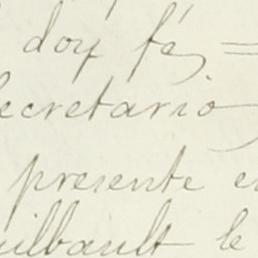 doy fé,
ecretario
presente e
uilbault le